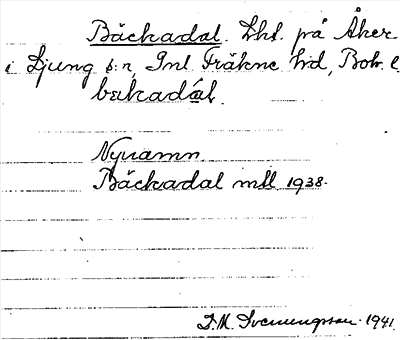 Bäckadal. Lht. på Åker
i Ljung s:n, Inl. Fräkne hd, Boh. l.
bekadál.
Nynamn.
Bäckadal mtl 1938.
D. M. Svenungsson. 1941.